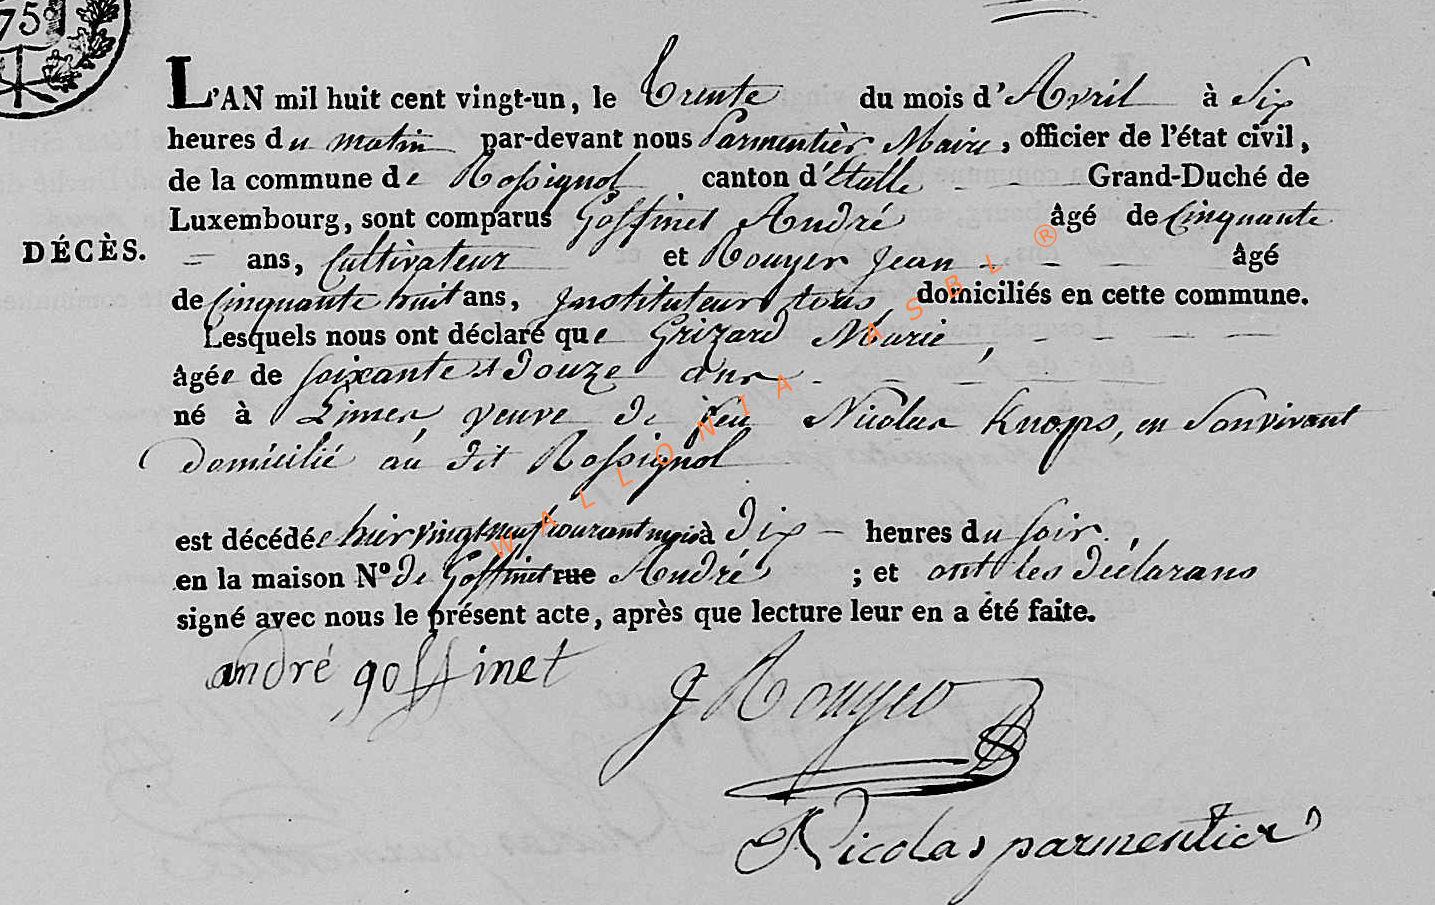 75
L'AN mil huit cent vingt-un, le trente du mois d'Avril à Six
heures du matin par-devant nous Parmentièr Maire, officier de l'état civil,
de la commune de Rossignol canton d'Etalle Grand-Duché de
Luxembourg, sont comparus Goffinet André âgé de Cinquante
DÉCÈS.
ans, Cultivateur et Rouyer Jean âgé
de Cinquante huit ans, Instituteur tous domiciliés en cette commune.
Lesquels nous ont déclaré que Grizard Marie,
âgée de soixante et Douze ans
né à veuve de feu Nicolas Knops, en Son vivant
Domicilié au dit Rossignol
est décédée hier vingt neuf courant mois à Dix heures du soir.
en la maison N° de Goffinet rue André ; et ont les Déclarans
signé avec nous le présent acte, après que lecture leur en a été faite.
andré goffinet
J Rouyer
Nicolas parmentier
WALLONIA ASBL ®